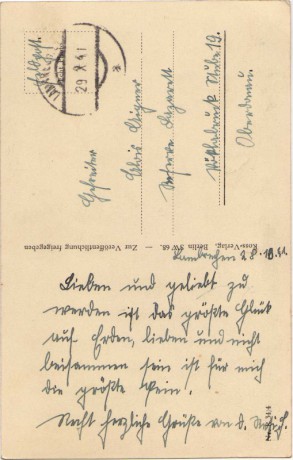 Feldpost.
29.X.41
Gefreiter
Alois Aigner
Reserve Lazarett
Vöcklabruck Stube 19.
Oberdonau.
Ross-Verlag, Berlin SW 68. — Zur Veröffentlichung freigegeben
28.10.41.
Lieben und geliebt zu
werden ist das größte Glück
auf Erden, lieben und nicht
beisammen sein ist für mich
die größte Pein.
Recht herzliche Grüße von d.